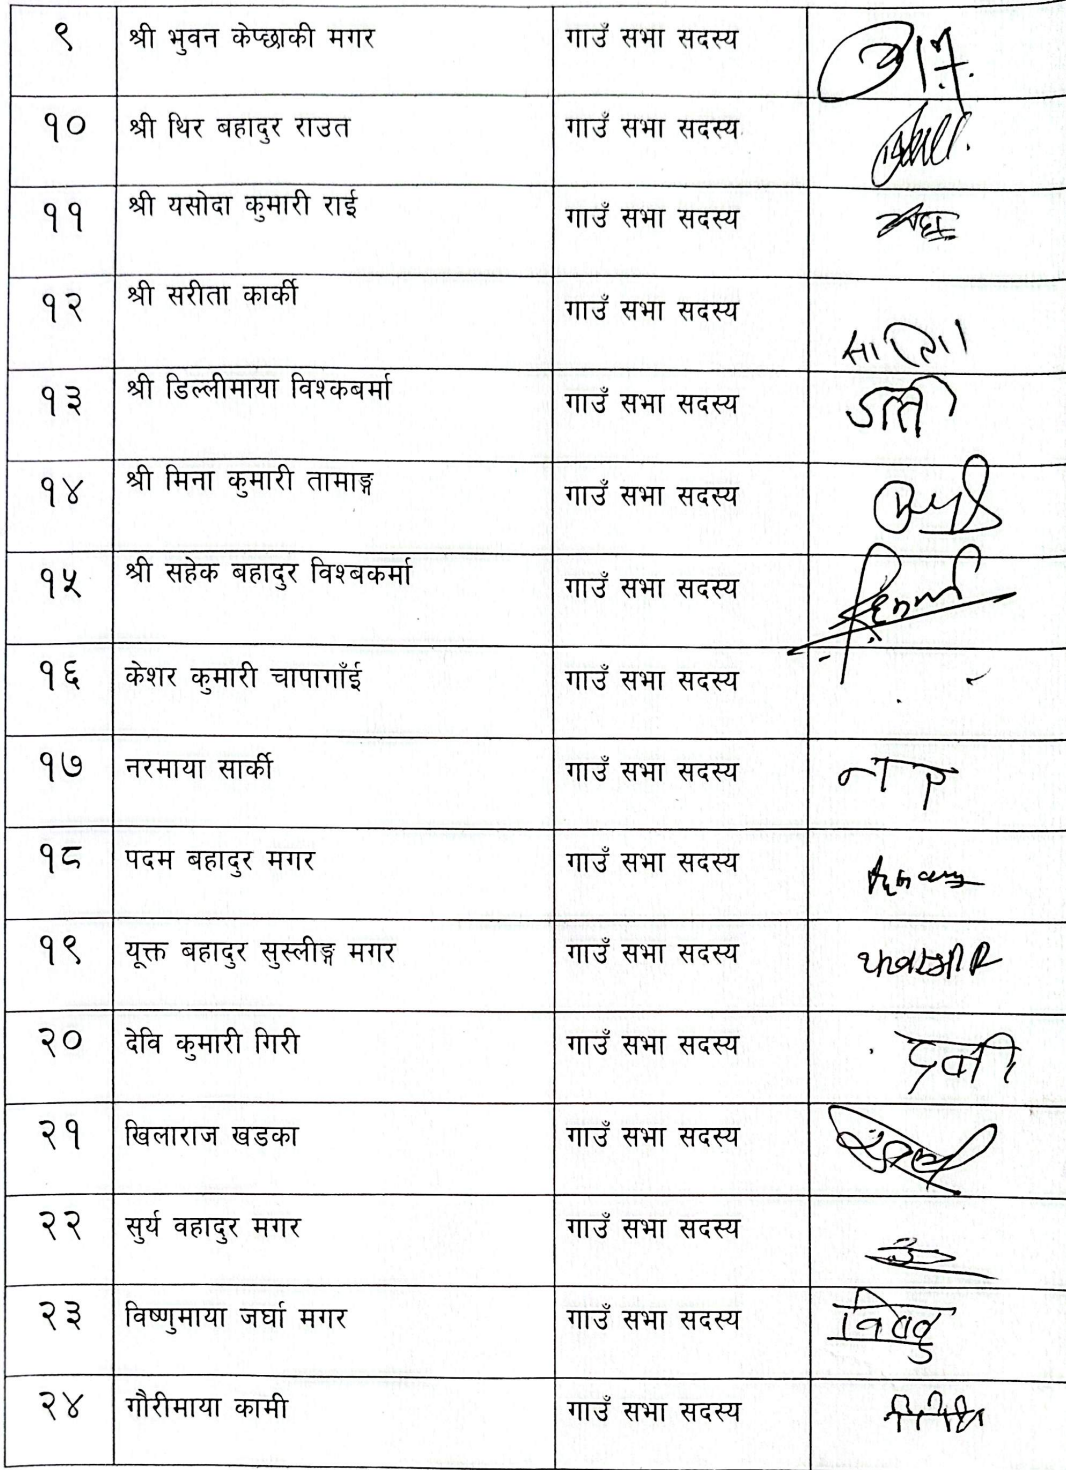 ९ श्री भुवन केप्छाकी मगर गाउँ सभा सदस्य
१० श्री थिर बहादुर राउत गाउँ सभा सदस्य
११ श्री यसोदा कुमारी राई गाउँ सभा सदस्य
१२ श्री सरीता कार्की गाउँ सभा सदस्य
१३ श्री डिल्लीमाया विश्कबर्मा गाउँ सभा सदस्य
१४ श्री मिना कुमारी तामाङ्ग गाउँ सभा सदस्य
१५ श्री सहेक बहादुर विश्बकर्मा गाउँ सभा सदस्य
१६ केशर कुमारी चापागाँई गाउँ सभा सदस्य
१७ नरमाया सार्की गाउँ सभा सदस्य
१८ पदम बहादुर मगर गाउँ सभा सदस्य
१९ यूक्त बहादुर सुस्लीङ्ग मगर गाउँ सभा सदस्य
२० देवि कुमारी गिरी गाउँ सभा सदस्य
२१ खिलाराज खडका गाउँ सभा सदस्य
२२ सुर्य वहादुर मगर गाउँ सभा सदस्य
२३ विष्णुमाया जर्घा मगर गाउँ सभा सदस्य
२४ गौरीमाया कामी गाउँ सभा सदस्य